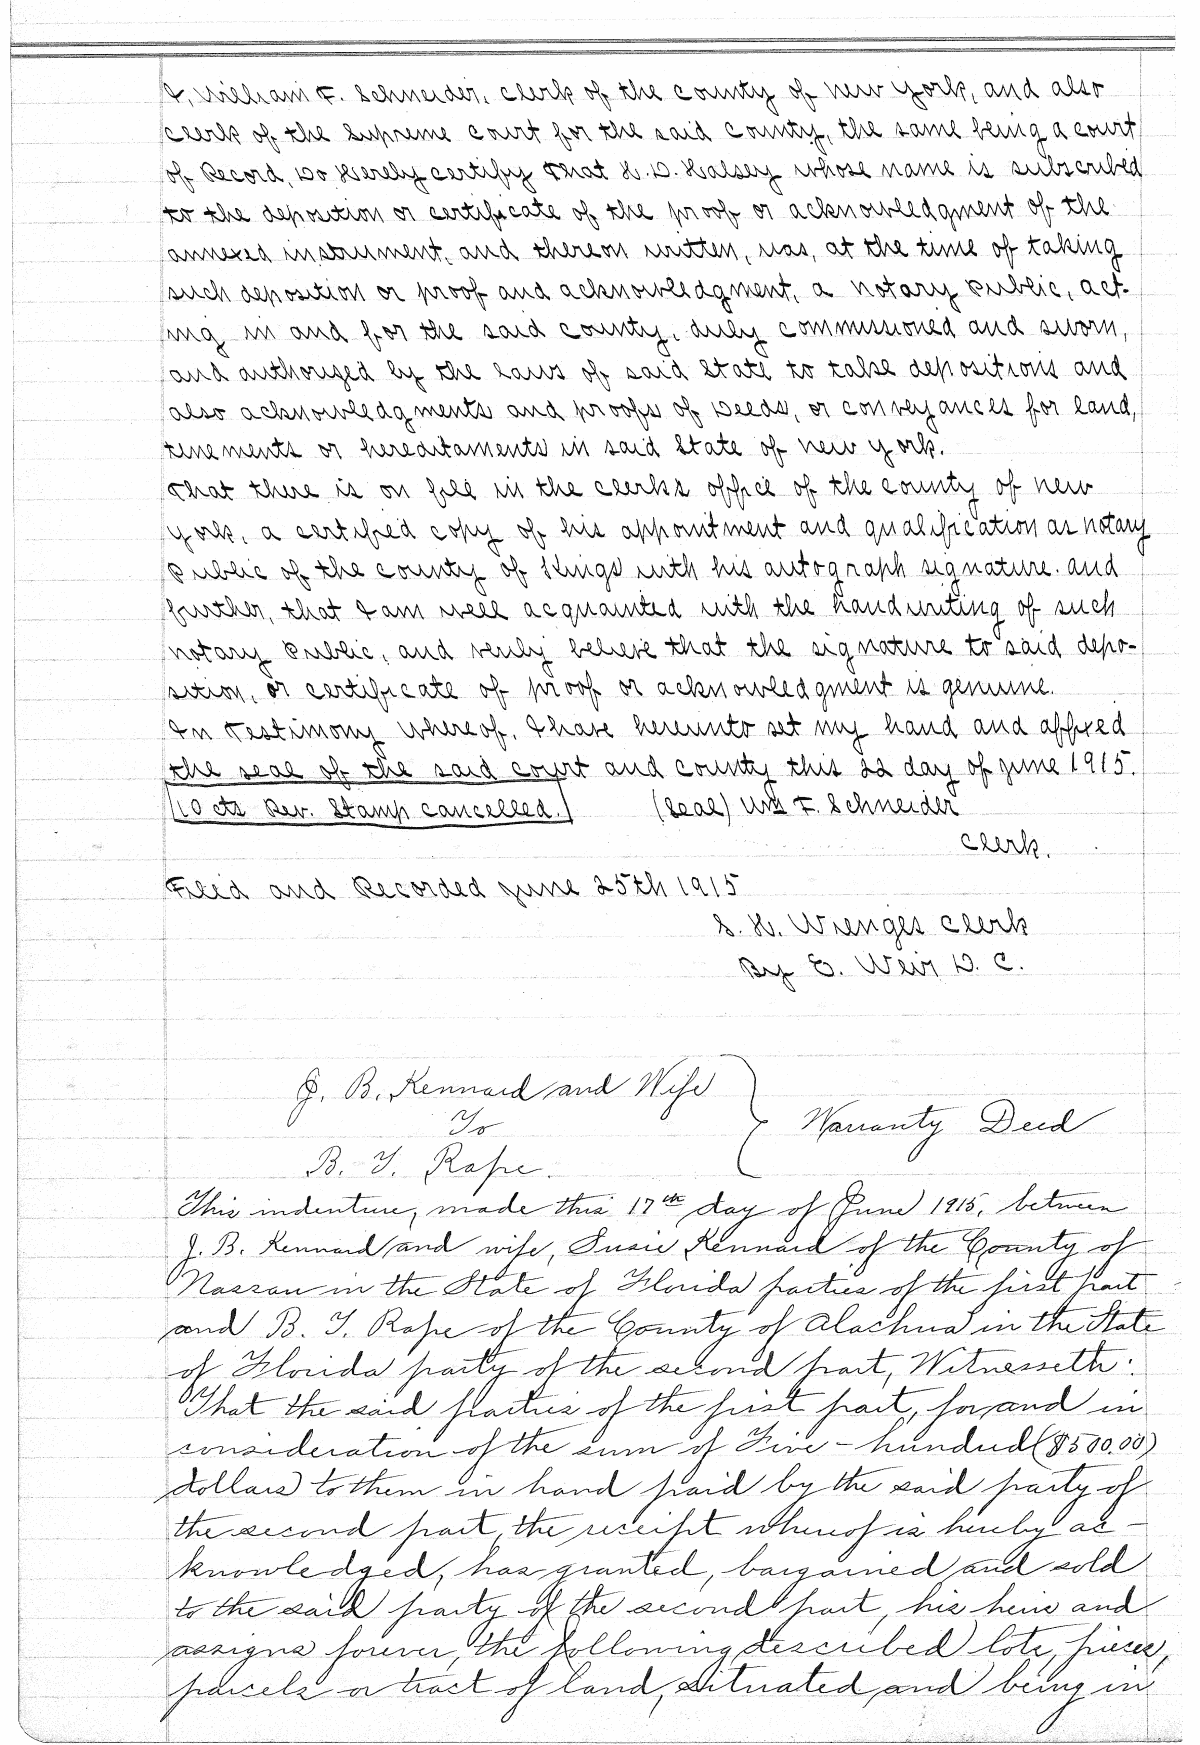 I, William F. Schneider, Clerk of the County of New York, and also
Clerk of the Supreme Court for the said County, the same being a court
of Record, Do Hereby certify That H. D. Halsey whose name is subscribed
to the deposition or certificate of the proof or acknowledgment of the
annexed instrument, and thereon written, was, at the time of taking
such deposition or proof and acknowledgment, a Notary Public, act-
ing in and for the said county, duly commissioned and sworn,
and authorized by the laws of said State to take depositions and
also acknowledgments and proofs of Deeds, or conveyances for land,
tenements or hereditaments in said State of New York.
That there is on file in the Clerks office of the County of New
York, a certified copy of his appointment and qualification as notary
Public of the County of Kings with his autograph signature. and
further, that I am well acquainted with the handwriting of such
Notary Public, and verily believe that the signature to said depo-
sition, or certificate of proof or acknowledgment is genuine.
In Testimony Whereof, I have hereunto set my hand and affixed
the seal of the said court and county this 22 day of June 1915.
10 cts Rev. Stamp cancelled. (Seal) Wm F. Schneider
Clerk.
Filed and Recorded June 25th 1915
S. H. Wienges Clerk
By E. Weir D. C.
J. B. Kennard and Wife
To
Warranty Deed
B. T. Rape.
This indenture, made this 17th day of June 1915, between
J. B. Kennard and wife, Susie Kennard of the County of
Nassau in the State of Florida parties of the first part
and B. T. Rape of the County of Alachua in the State
of Florida party of the second part, Witnesseth:
That the said parties of the first part, for and in
consideration of the sum of Five-hundred ($500.00)
dollars to them in hand paid by the said party of
the second part, the receipt whereof is hereby ac-
knowledged, has granted, bargained and sold
to the said party of the second part, his heirs and
assigns forever, the following described lots, pieces,
parcels or tract of land, situated and being in